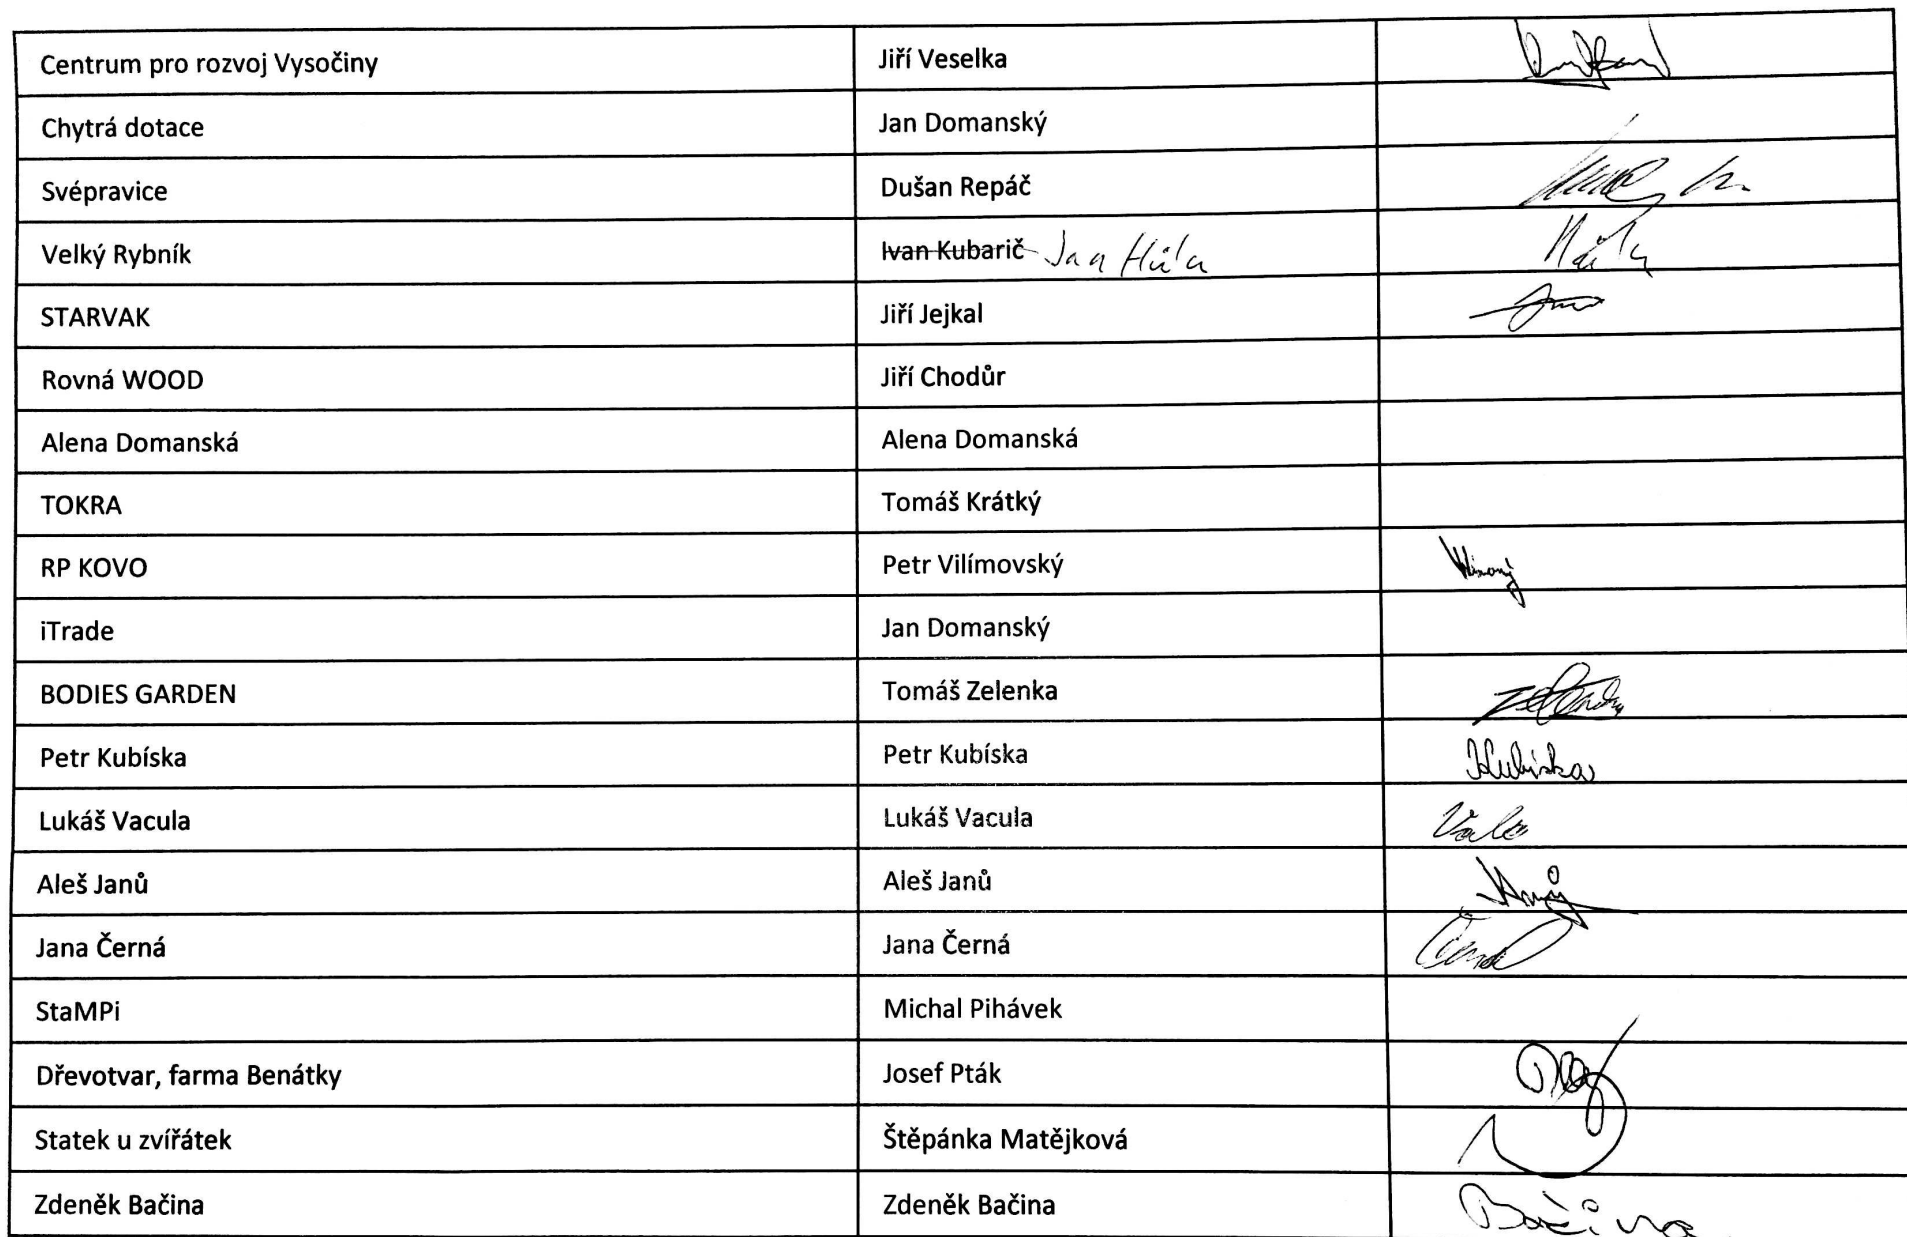 Centrum pro rozvoj Vysočiny Jiří Veselka
Chytrá dotace Jan Domanský
Svépravice Dušan Repáč
Velký Rybník Ivan Kubarič Jan Hůla Hůla
STARVAK Jiří Jejkal
Rovná WOOD Jiří Chodůr
Alena Domanská Alena Domanská
TOKRA Tomáš Krátký
RP KOVO Petr Vilímovský
iTrade Jan Domanský
BODIES GARDEN Tomáš Zelenka
Petr Kubíska Petr Kubíska Kubíska
Lukáš Vacula Lukáš Vacula
Aleš Janů Aleš Janů
Jana Černá Jana Černá
StaMPi Michal Pihávek
Dřevotvar, farma Benátky Josef Pták
Statek u zvířátek Štěpánka Matějková
Zdeněk Bačina Zdeněk Bačina Bačina